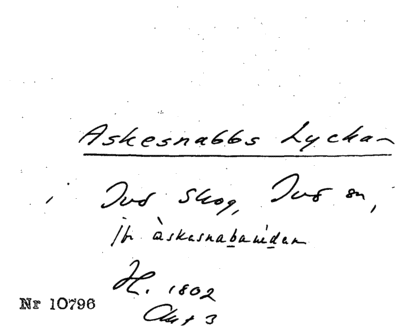 Askesnabbs Lyckan
Jvs skog, Jvs sn,
jfr àskesnabawídan
H. 1802
Akt 3
Nr 10796